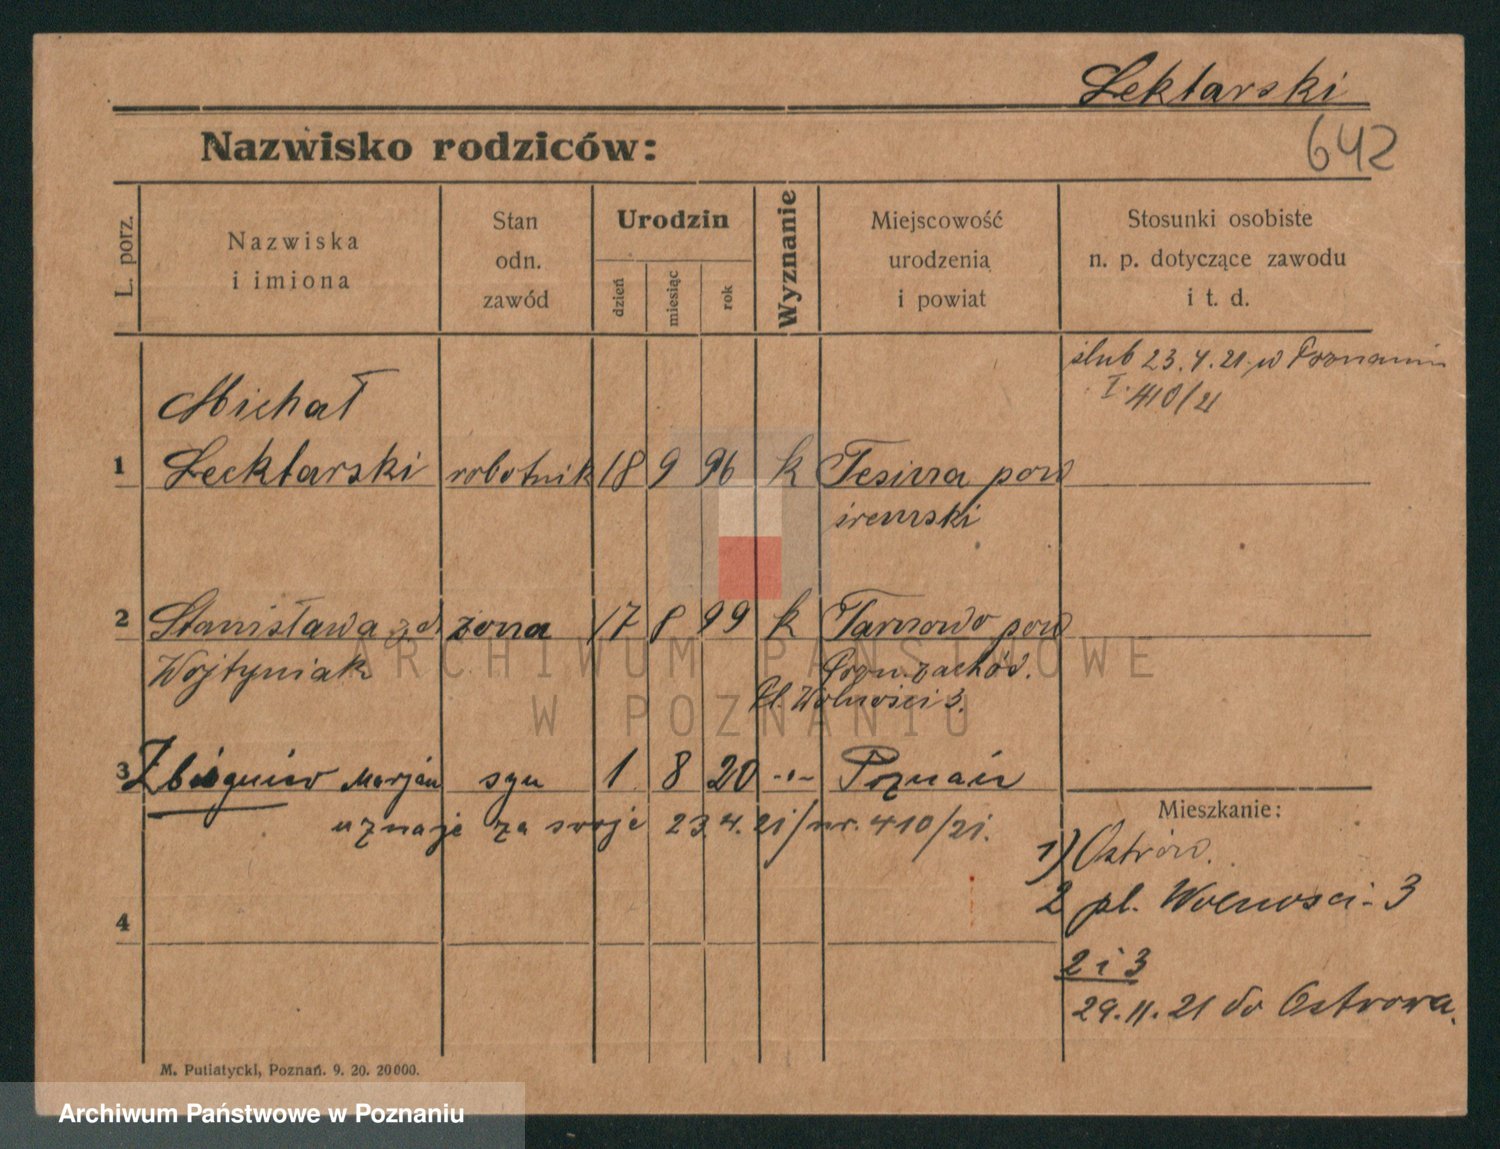 Lektarski
642
Nazwisko rodziców:
L. porz.
Nazwiska
i imiona
Stan
odn.
zawód
Urodzin
dzień
miesiąc
rok
Wyznanie
Miejscowość
urodzenia
i powiat
Stosunki osobiste
n. p. dotyczące zawodu
i t. d.
ślub 23.4.21 w Poznaniu
I. 410/21
Michał
1 Lecktarski robotnik 18 9 96 k pow
śremski
2 Stanisława zd żona 17 8 99 k Tarnowo pow
Wojtyniak Pozn. zachód.
Pl. Wolności 3.
3 Zbigniew Marjan syn 1 8 20 -"- Poznań
uznaje za swoje 23.4.21/nr. 410/21.
Mieszkanie:
1) Ostrów.
2 pl. Wolnosci - 3
4
2 i 3
29.11.21 do Ostrowa.
M. Putiatycki, Poznań. 9. 20. 20000.
ARCHIWUM PAŃSTWOWE
W POZNANIU
Archiwum Państwowe w Poznaniu